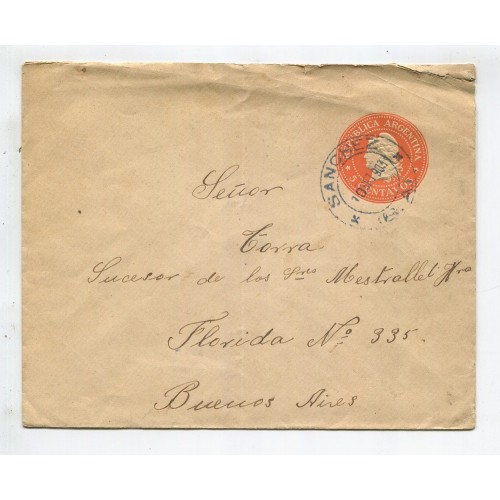 REPUBLICA ARGENTINA
5 CENTAVOS
SANCHEZ
Señor
Torra
Sucesor de los Sres Mestrallet Hno
Florida No. 335.
Buenos Aires